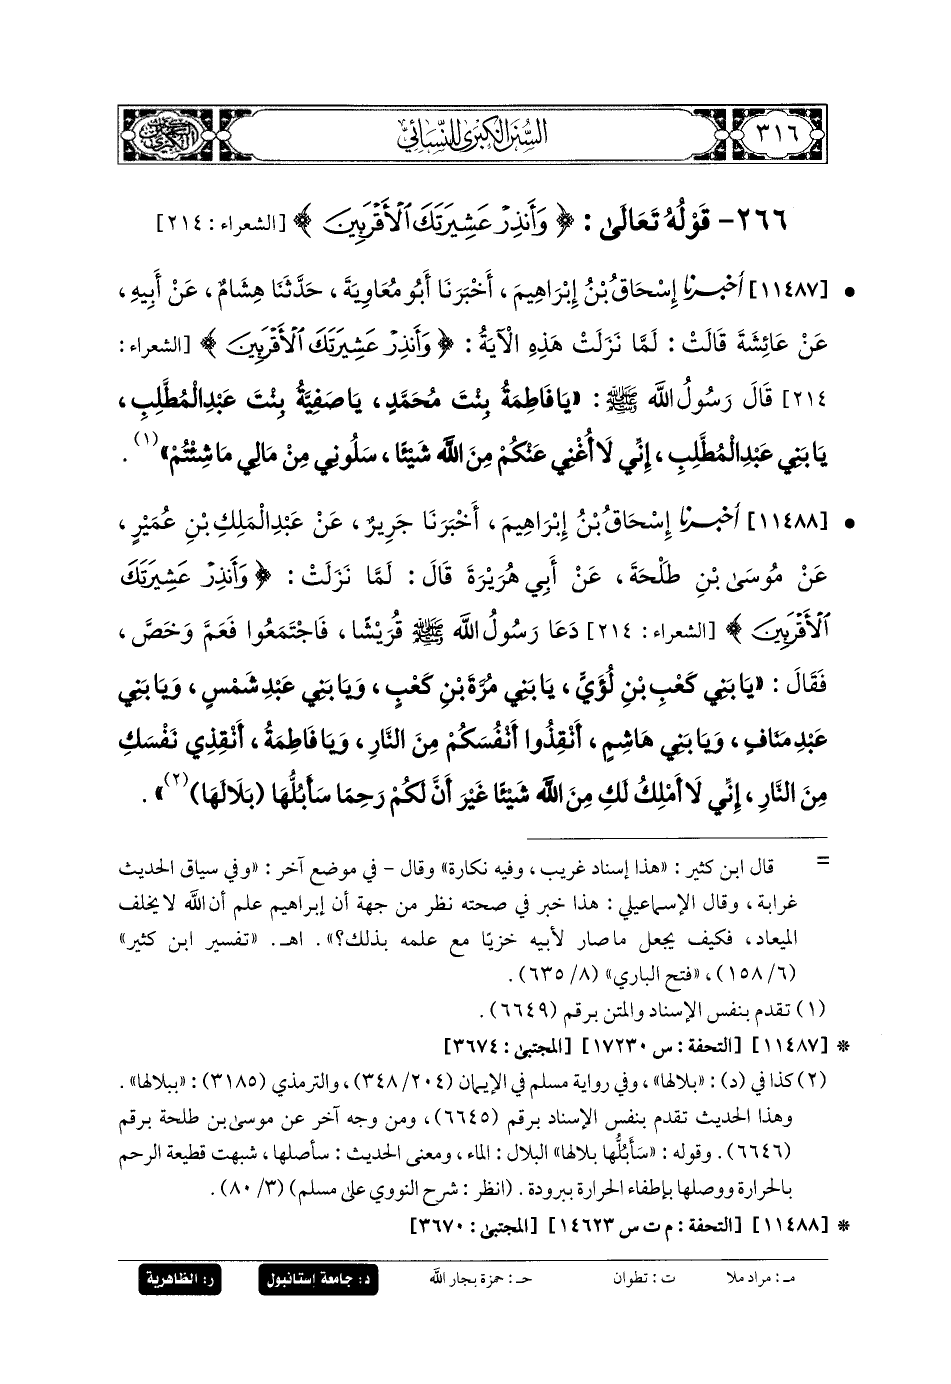 ٣١٦
السُّنَنُ الكُبْرَى لِلنَّسَائِيّ
٢٦٦- قَوْلُهُ تَعَالَىٰ : ﴿ وَأَنذِرْ عَشِيرَتَكَ ٱلْأَقْرَبِينَ ﴾ [الشعراء : ٢١٤]
• [١١٤٨٧] أَخْبَرَنَا إِسْحَاقُ بْنُ إِبْرَاهِيمَ ، أَخْبَرَنَا أَبُو مُعَاوِيَةَ ، حَدَّثَنَا هِشَامٌ ، عَنْ أَبِيهِ ،
عَنْ عَائِشَةَ قَالَتْ : لَمَّا نَزَلَتْ هَذِهِ الْآيَةُ : ﴿ وَأَنذِرْ عَشِيرَتَكَ ٱلْأَقْرَبِينَ ﴾ [الشعراء :
٢١٤] قَالَ رَسُولُ اللَّه ﷺ : «يَا فَاطِمَةُ بِنْتَ مُحَمَّدٍ ، يَا صَفِيَّةُ بِنْتَ عَبْدِ الْمُطَّلِبِ ،
يَا بَنِي عَبْدِ الْمُطَّلِبِ ، إِنِّي لَا أُغْنِي عَنْكُمْ مِنَ اللَّه شَيْئًا ، سَلُونِي مِنْ مَالِي مَا شِئْتُمْ»(١) .
• [١١٤٨٨] أَخْبَرَنَا إِسْحَاقُ بْنُ إِبْرَاهِيمَ ، أَخْبَرَنَا جَرِيرٌ ، عَنْ عَبْدِ الْمَلِكِ بْنِ عُمَيْرٍ ،
عَنْ مُوسَىٰ بْنِ طَلْحَةَ ، عَنْ أَبِي هُرَيْرَةَ قَالَ : لَمَّا نَزَلَتْ : ﴿ وَأَنذِرْ عَشِيرَتَكَ
ٱلْأَقْرَبِينَ ﴾ [الشعراء : ٢١٤] دَعَا رَسُولُ اللَّه ﷺ قُرَيْشًا ، فَاجْتَمَعُوا فَعَمَّ وَخَصَّ ،
فَقَالَ : «يَا بَنِي كَعْبِ بْنِ لُؤَيٍّ ، يَا بَنِي مُرَّةَ بْنِ كَعْبٍ ، وَيَا بَنِي عَبْدِ شَمْسٍ ، وَيَا بَنِي
عَبْدِ مَنَافٍ ، وَيَا بَنِي هَاشِمٍ ، أَنْقِذُوا أَنْفُسَكُمْ مِنَ النَّارِ ، وَيَا فَاطِمَةُ ، أَنْقِذِي نَفْسَكِ
مِنَ النَّارِ ، إِنِّي لَا أَمْلِكُ لَكِ مِنَ اللَّه شَيْئًا غَيْرَ أَنَّ لَكُمْ رَحِمًا سَأَبُلُّهَا (بَلَالَهَا)(٢)» .
= قال ابن كثير : «هذا إسناد غريب ، وفيه نكارة» وقال - في موضع آخر : «وفي سياق الحديث
غرابة ، وقال الإسماعيلي : هذا خبر في صحته نظر من جهة أن إبراهيم علم أن اللَّه لا يخلف
الميعاد ، فكيف يجعل ما صار لأبيه خزيًا مع علمه بذلك؟» . اهـ . «تفسير ابن كثير»
(٦/ ١٥٨) ، «فتح الباري» (٨/ ٦٣٥) .
(١) تقدم بنفس الإسناد والمتن برقم (٦٦٤٩) .
* [١١٤٨٧] [التحفة : س ١٧٢٣٠] [المجتبى : ٣٦٧٤]
(٢) كذا في (د) : «بلالها» ، وفي رواية مسلم في الإيمان (٢٠٤/ ٣٤٨) ، والترمذي (٣١٨٥) : «ببلالها» .
وهذا الحديث تقدم بنفس الإسناد برقم (٦٦٤٥) ، ومن وجه آخر عن موسىٰ بن طلحة برقم
(٦٦٤٦) . وقوله : «سَأَبُلُّها بلالها» البلال : الماء ، ومعنى الحديث : سأصلها ، شبهت قطيعة الرحم
بالحرارة ووصلها بإطفاء الحرارة ببرودة . (انظر : شرح النووي على مسلم) (٣/ ٨٠) .
* [١١٤٨٨] [التحفة : م ت س ١٤٦٢٣] [المجتبى : ٣٦٧٠]
مـ : مراد ملا ت : تطوان حـ : حمزة بجار اللَّه د : جامعة إستانبول ر : الظاهرية